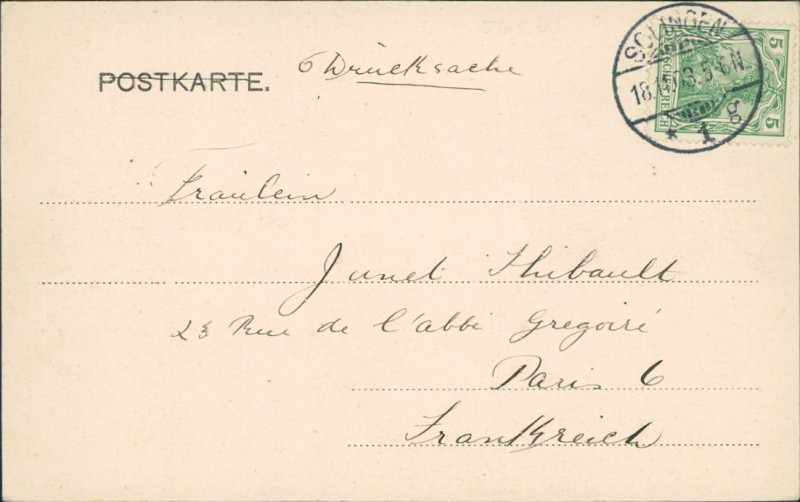 POSTKARTE. Drucksache
SOLINGEN
5-6N.
* 1 g
5 5
REICH
Fräulein
Junet Thibault
23 Rue de l'abbi Gregoiré
Paris 6
Frankreich